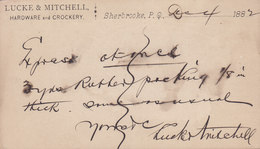 LUCKE & MITCHELL,
HARDWARE AND CROCKERY.
Sherbrooke, P. Q. Dec 4 1882
Express at once
3 yds Rubber packing 1/8 in
thick. same as usual
Yours &c
Lucke & Mitchell